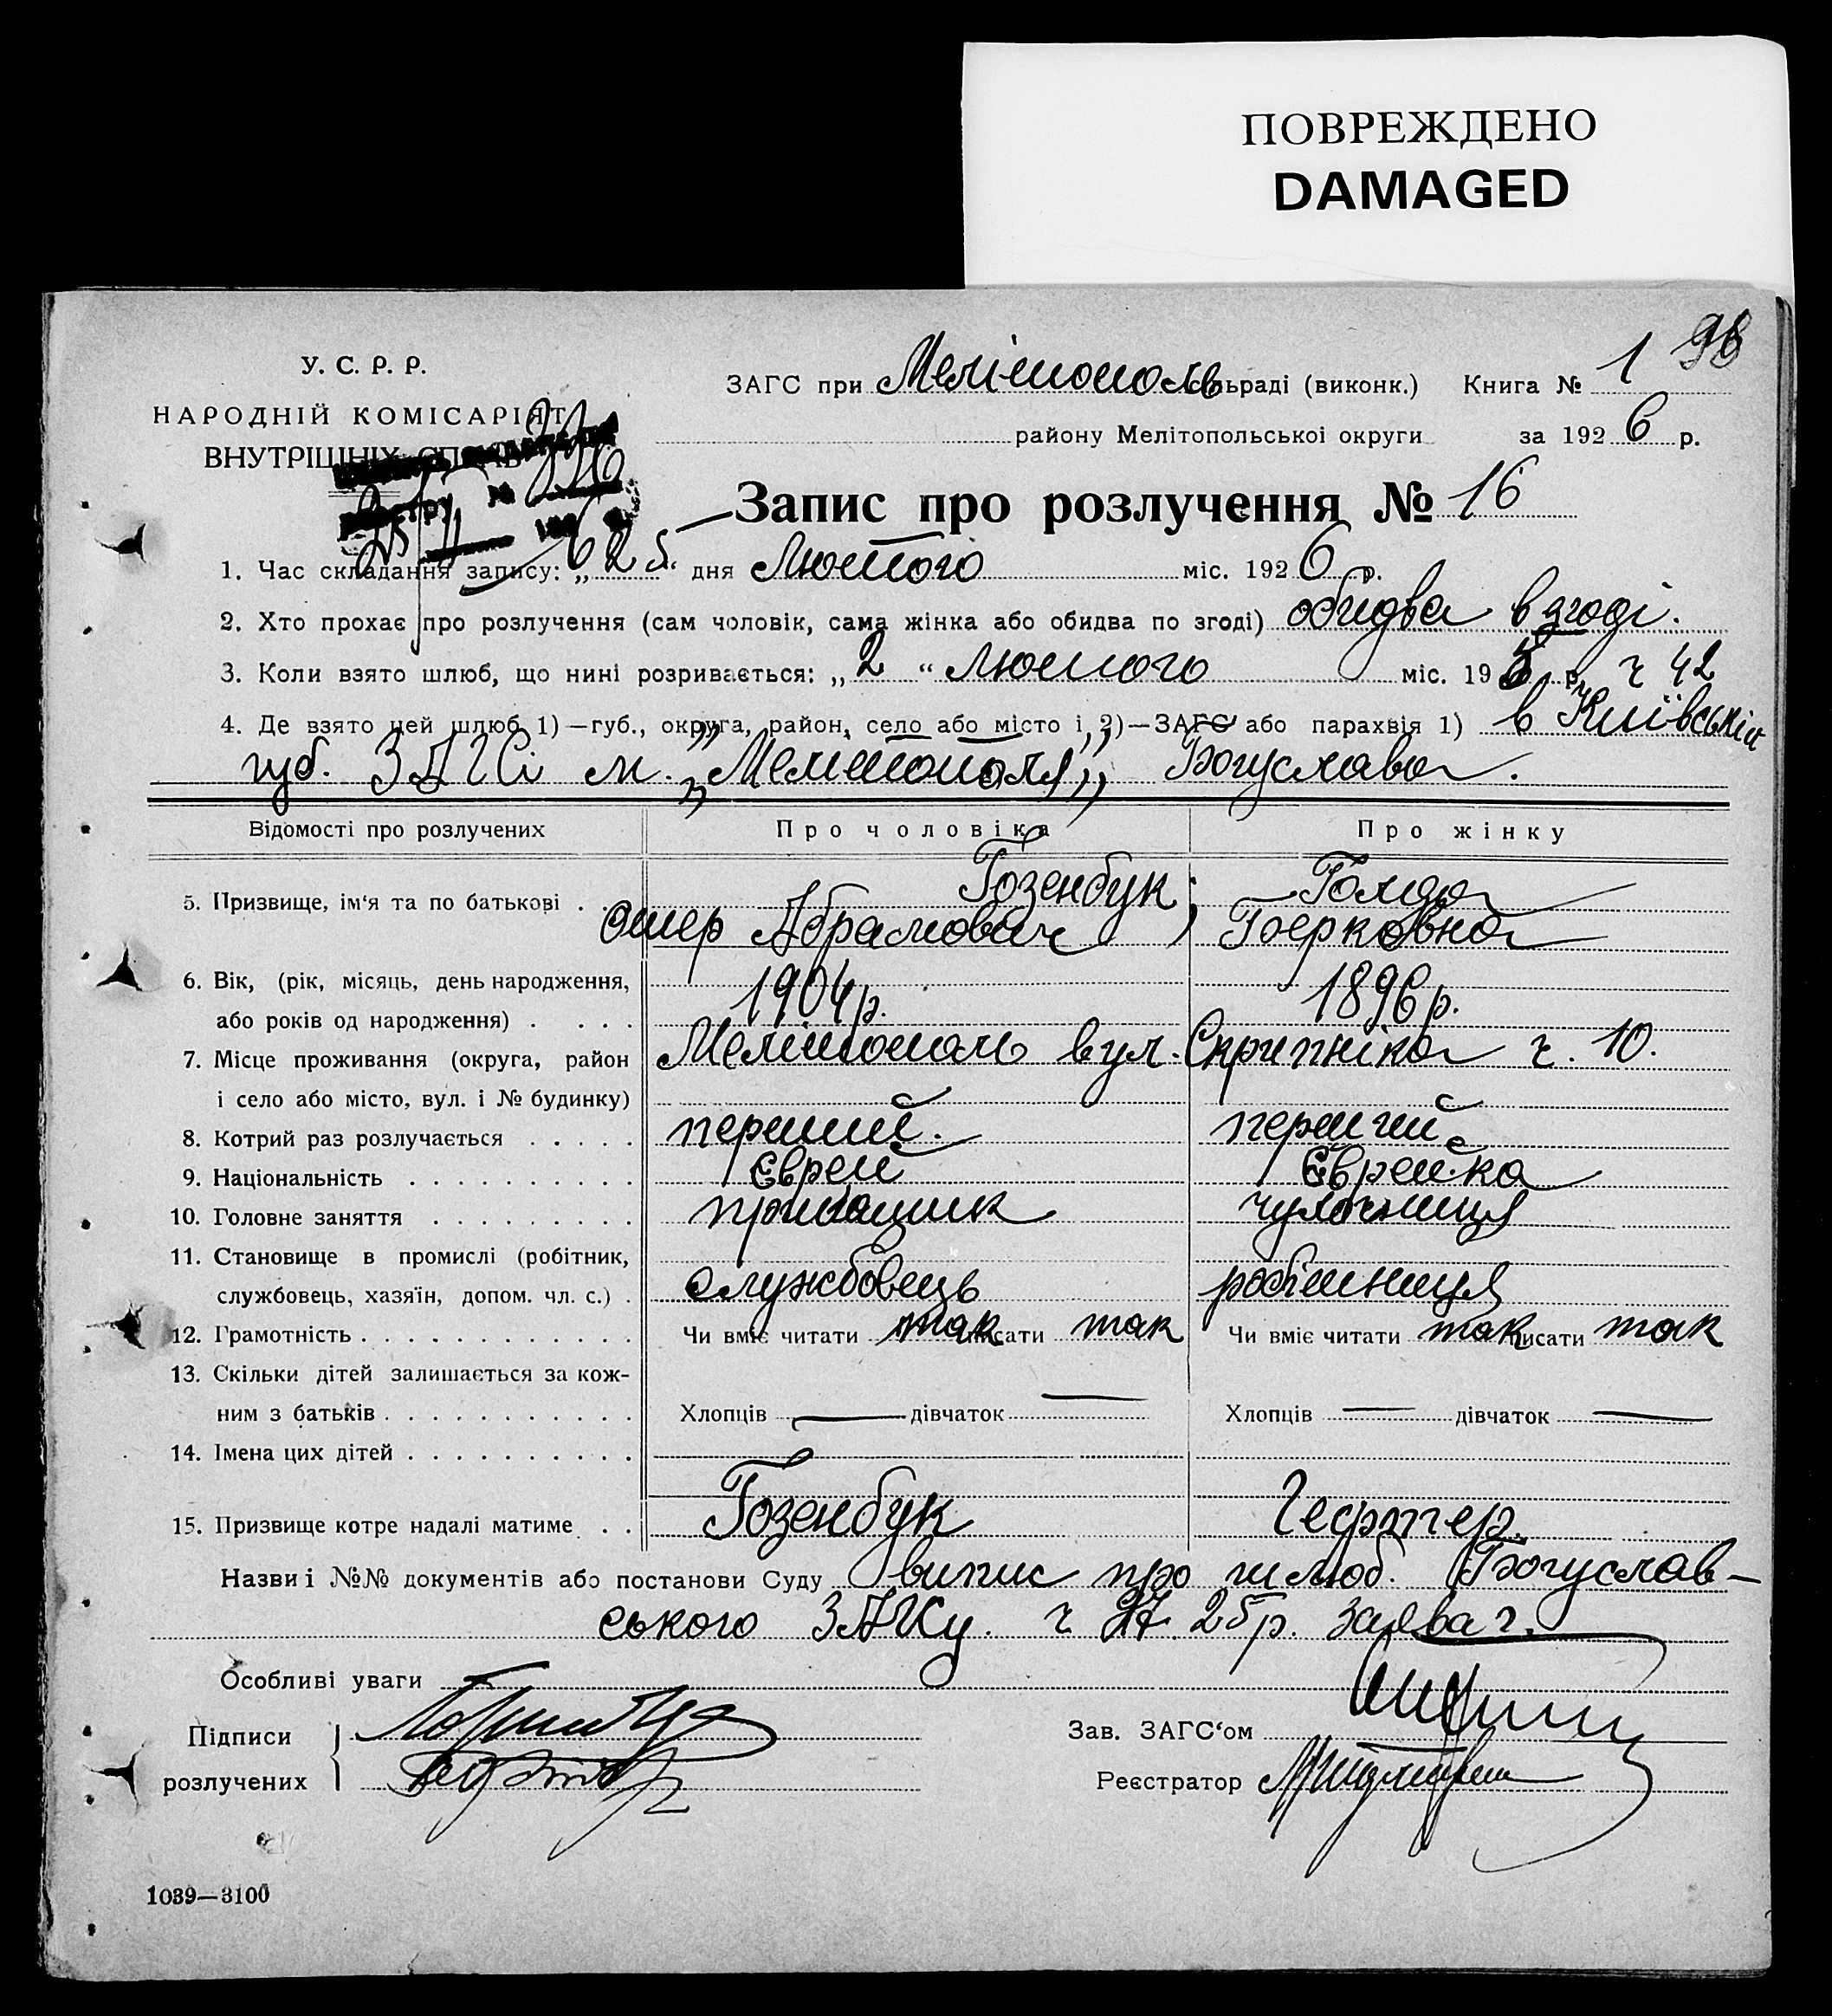 ПОВРЕЖДЕНО
DAMAGED
1 98
У. С. Р. Р.
НАРОДНІЙ КОМІСАРІЯТ
ВНУТРІШНІХ СПРАВ
ЗАГС при Мелітополь сільраді (виконк.) Книга № 1
району Мелітопольської округи за 1926 р.
Запис про розлучення № 16
1. Час складання запису: „25“ дня Лютого міс. 1926 р.
2. Хто прохає про розлучення (сам чоловік, сама жінка або обидва по згоді) обидва в згоді.
3. Коли взято шлюб, що нині розривається: „2“ Лютого міс. 195 р. ч 42
4. Де взято цей шлюб 1)—губ., округа, район, село або місто і, 2)—ЗАГС або парахвія 1) в Київській
губ. ЗАГСі м. „Мелітополя„ Богуслава.
Відомості про розлучених
Про чоловіка
Про жінку
5. Призвище, ім'я та по батькові . .
Гозенбук
Ошер Абрамович
Голда
Берковна
6. Вік, (рік, місяць, день народження,
або років од народження) . . . .
1904р.
1896р.
7. Місце проживання (округа, район
і село або місто, вул. і № будинку)
Мелітополь вул. Скрипніка ч. 10.
8. Котрий раз розлучається . . . . .
перший.
перший
9. Національність . . . . . . . . . .
Єврей
Єврейка
10. Головне заняття . . . . . . . . .
прикащик
чулочниця
11. Становище в промислі (робітник,
службовець, хазяїн, допом. чл. с.) .
службовець
робітниця
12. Грамотність . . . . . . . . . . . .
Чи вміє читати так писати так
Чи вміє читати так писати так
13. Скільки дітей залишається за кож-
ним з батьків . . . . . . . . . . .
Хлопців — дівчаток —
Хлопців — дівчаток —
14. Імена цих дітей . . . . . . . . . .
15. Призвище котре надалі матиме . .
Гозенбук
Гефтер.
Назви і №№ документів або постанови Суду випис про шлюб. Богуслав-
ського ЗАГСу. ч 25р. заява ч.
Особливі уваги
Підписи
розлучених
Зав. ЗАГС‘ом
Реєстратор
1039—3100